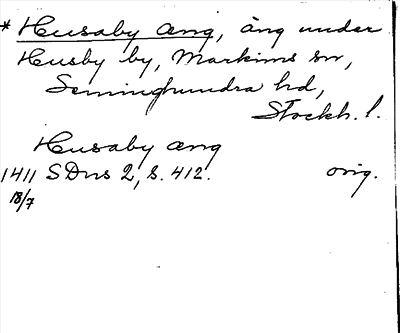 * Husaby æng, äng under
Husby by, Markims sn,
Seminghundra hd,
Stockh. l.
Husaby æng
1411 SDns 2, s. 412. orig.
18/7